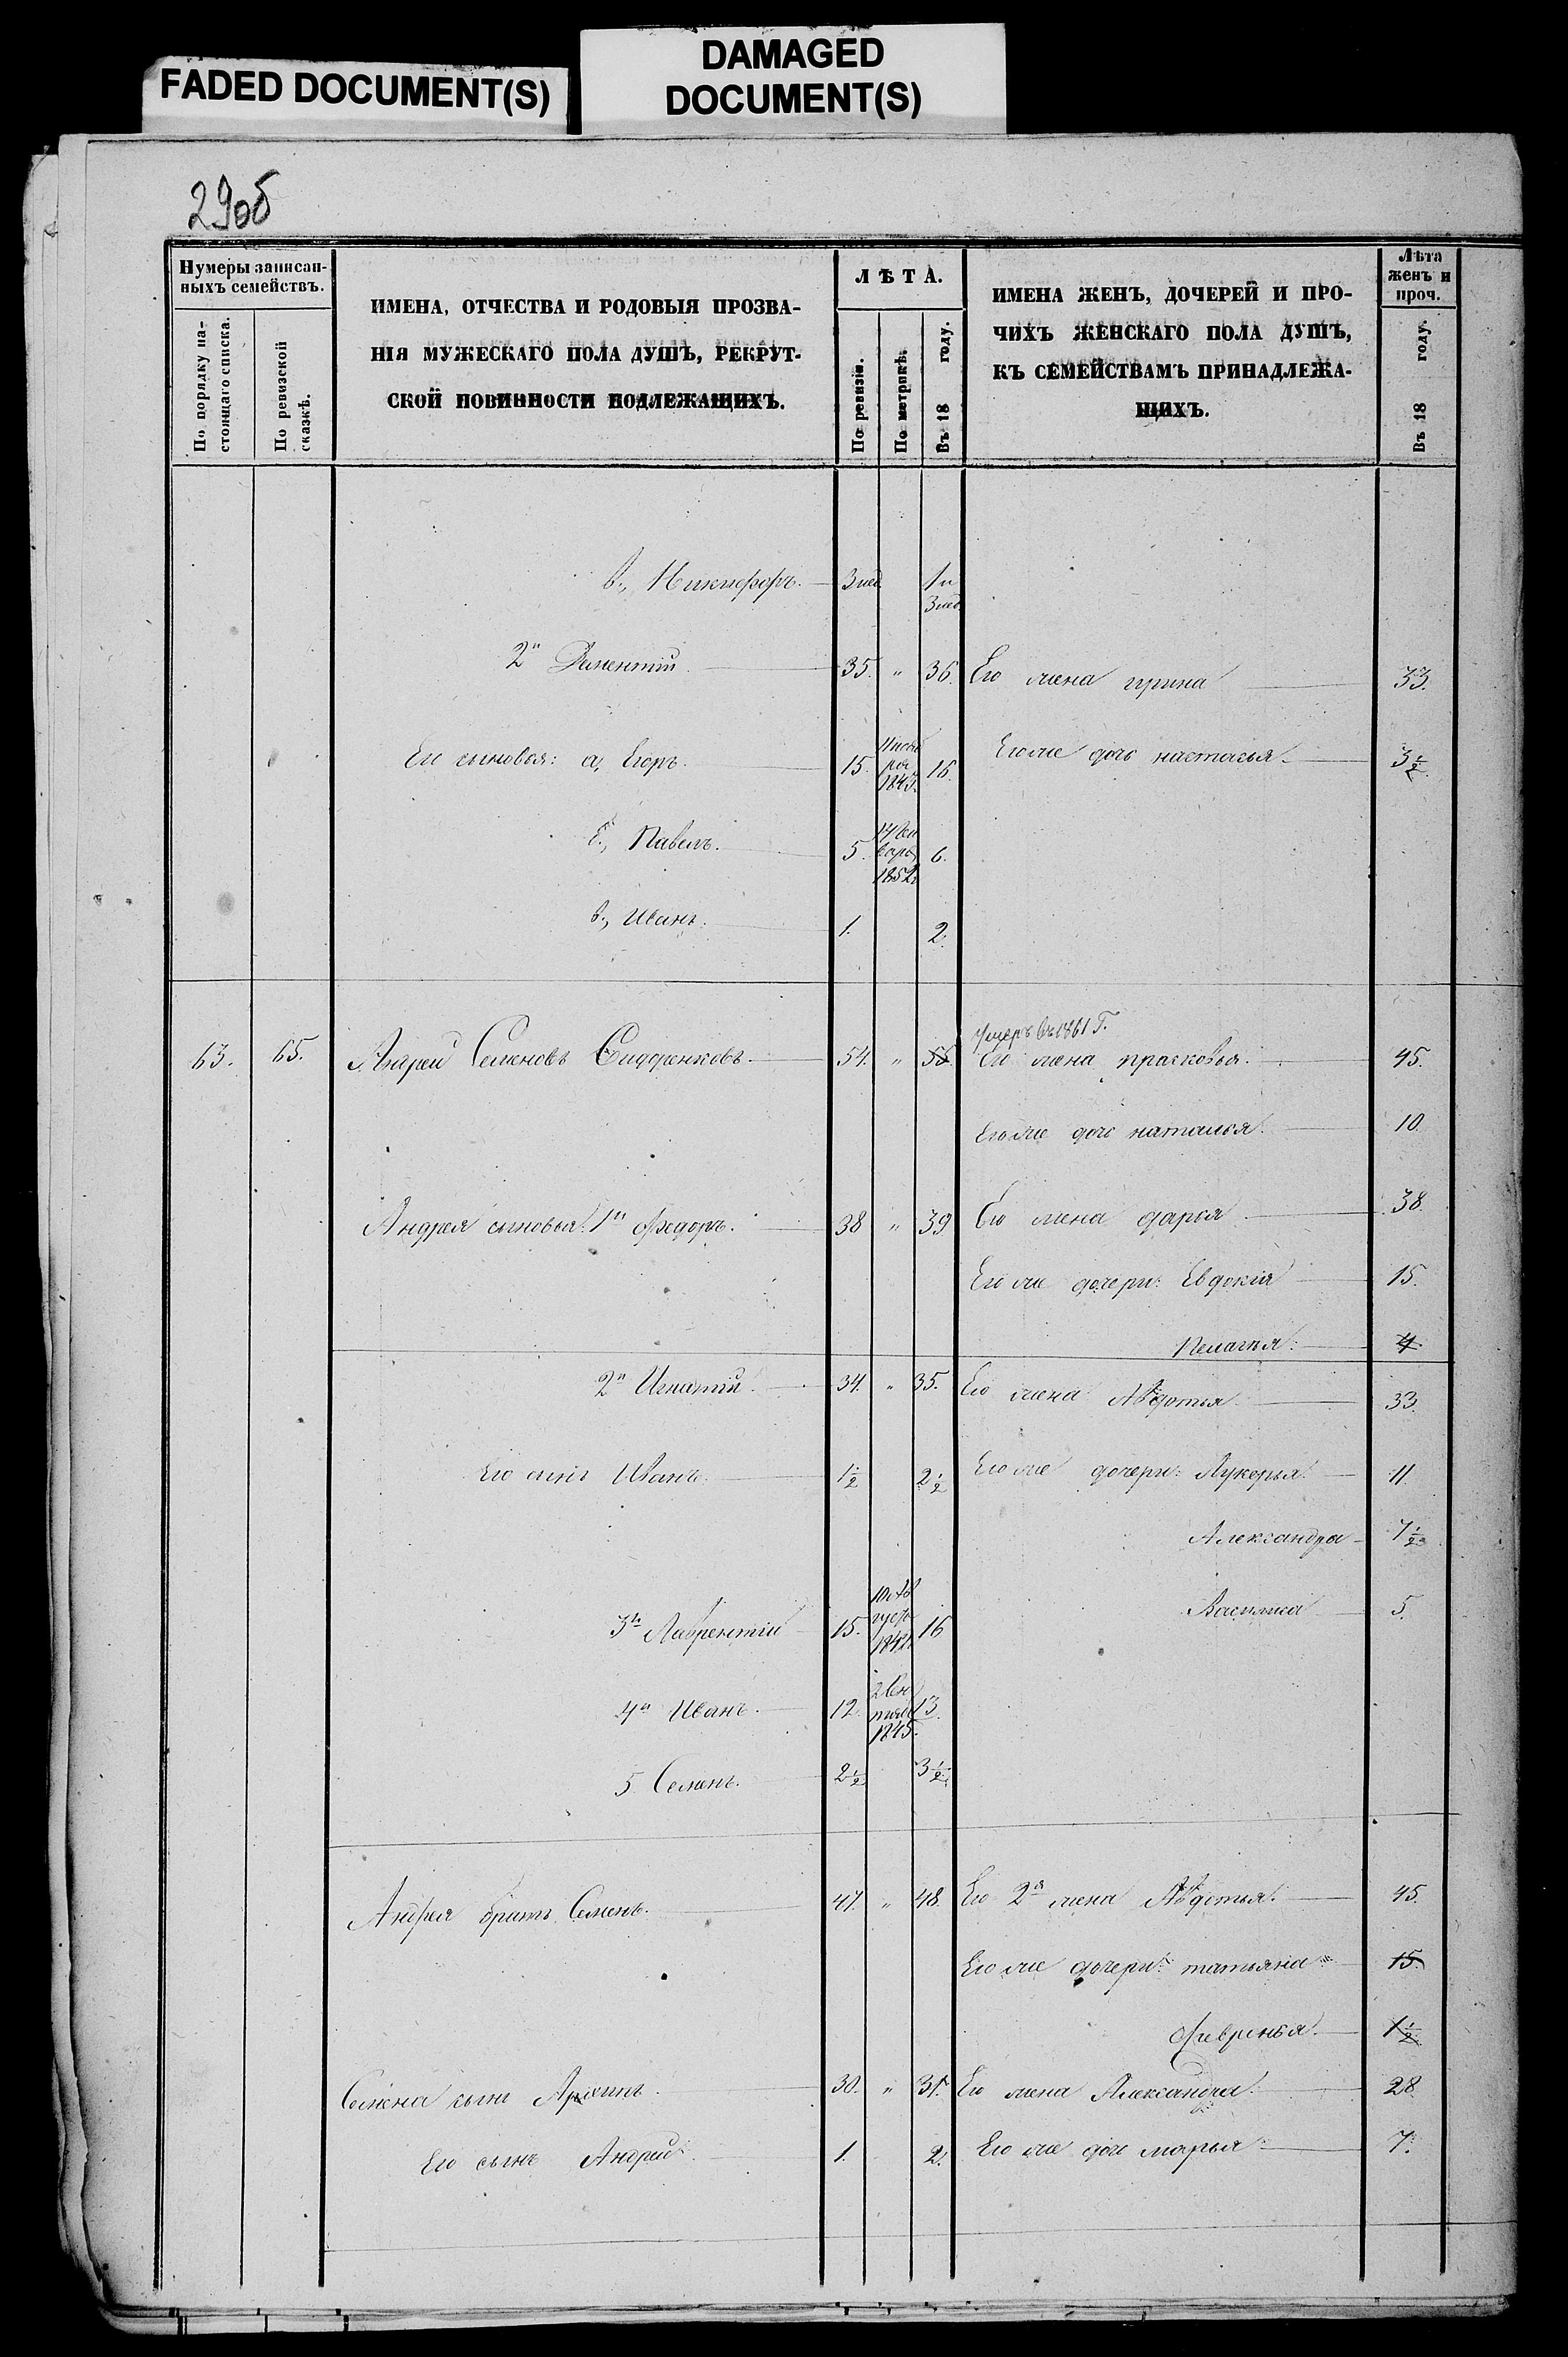 FADED DOCUMENT(S)
DAMAGED
DOCUMENT(S)
29об
Нумеры записан-
ныхъ семействъ.
По порядку на-
стоящаго списка.
По ревизской
сказкѣ.
ИМЕНА, ОТЧЕСТВА И РОДОВЫЯ ПРОЗВА-
НІЯ МУЖЕСКАГО ПОЛА ДУШЪ, РЕКРУТ-
СКОЙ ПОВИННОСТИ ПОДЛЕЖАЩИХЪ.
ЛѢТА.
По ревизіи.
По метрикѣ.
Въ 18 году.
ИМЕНА ЖЕНЪ, ДОЧЕРЕЙ И ПРО-
ЧИХЪ ЖЕНСКАГО ПОЛА ДУШЪ,
КЪ СЕМЕЙСТВАМЪ ПРИНАДЛЕЖА-
ЩИХЪ.
Лѣта
женъ и
проч.
Въ 18 году.
в., Никифоръ. 3 нед 1 и
3 нед
2й Дементій 35. " 36. Его жена ирина 33.
Его сыновья: а, Егоръ. 15. 1843. 16. Его же дочь настасья 3½
б., Павелъ. 5. 1852. 6.
в., Иванъ. 1. 2.
Умеръ въ 1861 г.
63. 65. Андрей Семеновъ Сидоренковъ. 54. " 55. Его жена прасковья. 45.
Его же дочь наталья. 10.
Андрея сыновья: 1й Федоръ. 38 " 39 Его жена дарья 38.
Его же дочери: Евдокія 15.
Пелагья. 4.
2й Игнатій. 34. " 35. Его жена Авдотья 33.
Его сынъ Иванъ. 1½ 2½ Его же дочери: Лукерья 11.
Александра 7½
Василиса 5.
3й Лаврентій 15. 16
4й Иванъ. 12. 2 Сен
тяб
1845. 13.
5 Семенъ. 2½ 3½
Андрея братъ Семенъ. 47. " 48. Его 2я жена Авдотья. 45.
Его же дочери: татьяна 15.
Февринья. 1½
Семена сынъ 30. " 31. Его жена Александра. 28
Его сынъ Андрей. 1. 2. Его же дочь марья 7.